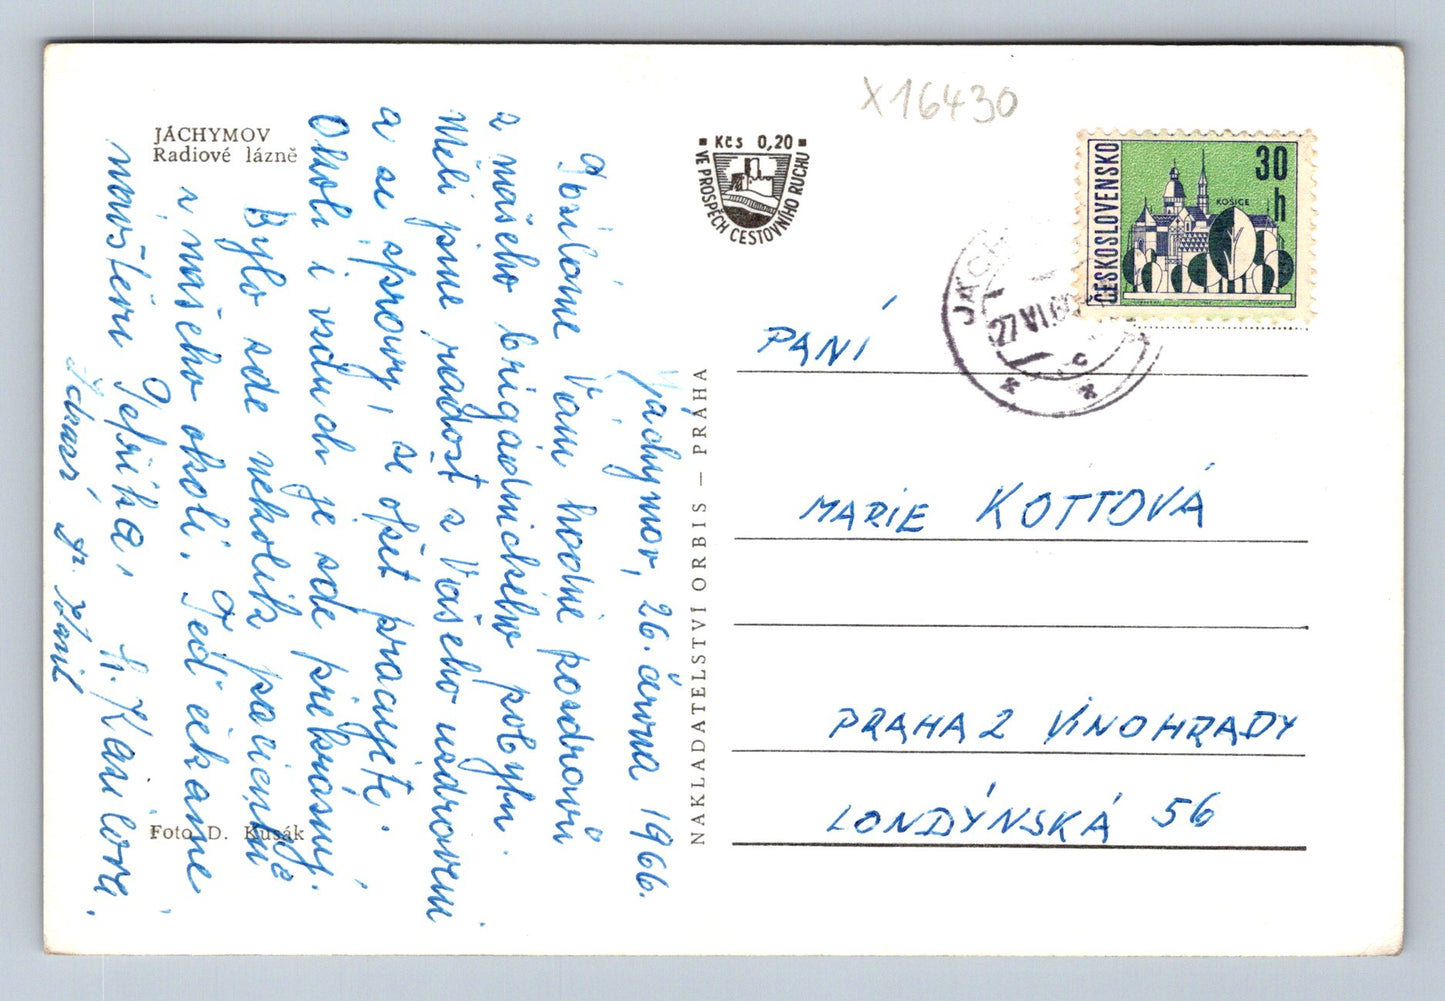 JÁCHYMOV
Radiové lázně
Jáchymov, 26. června 1966.
Posíláme Vám hodně pozdravů
z našeho brigádnického pobytu.
Měli jsme radost z Vašeho uzdravení
a ze zprávy, že opět pracujete.
Okolí i vzduch je zde překrásný.
Bylo zde několik pacientů
z našeho okolí. Teď čekáme
návštěvu Jeříka. Kasilova.
Zdraví
Foto D. Kusák
NAKLADATELSTVÍ ORBIS — PRAHA
Kčs 0,20
VE PROSPĚCH CESTOVNÍHO RUCHU
X16430
ČESKOSLOVENSKO
30 h
KOŠICE
JÁCH
27.VI.66
PANÍ
MARIE KOTTOVÁ
PRAHA 2 VINOHRADY
LONDÝNSKÁ 56